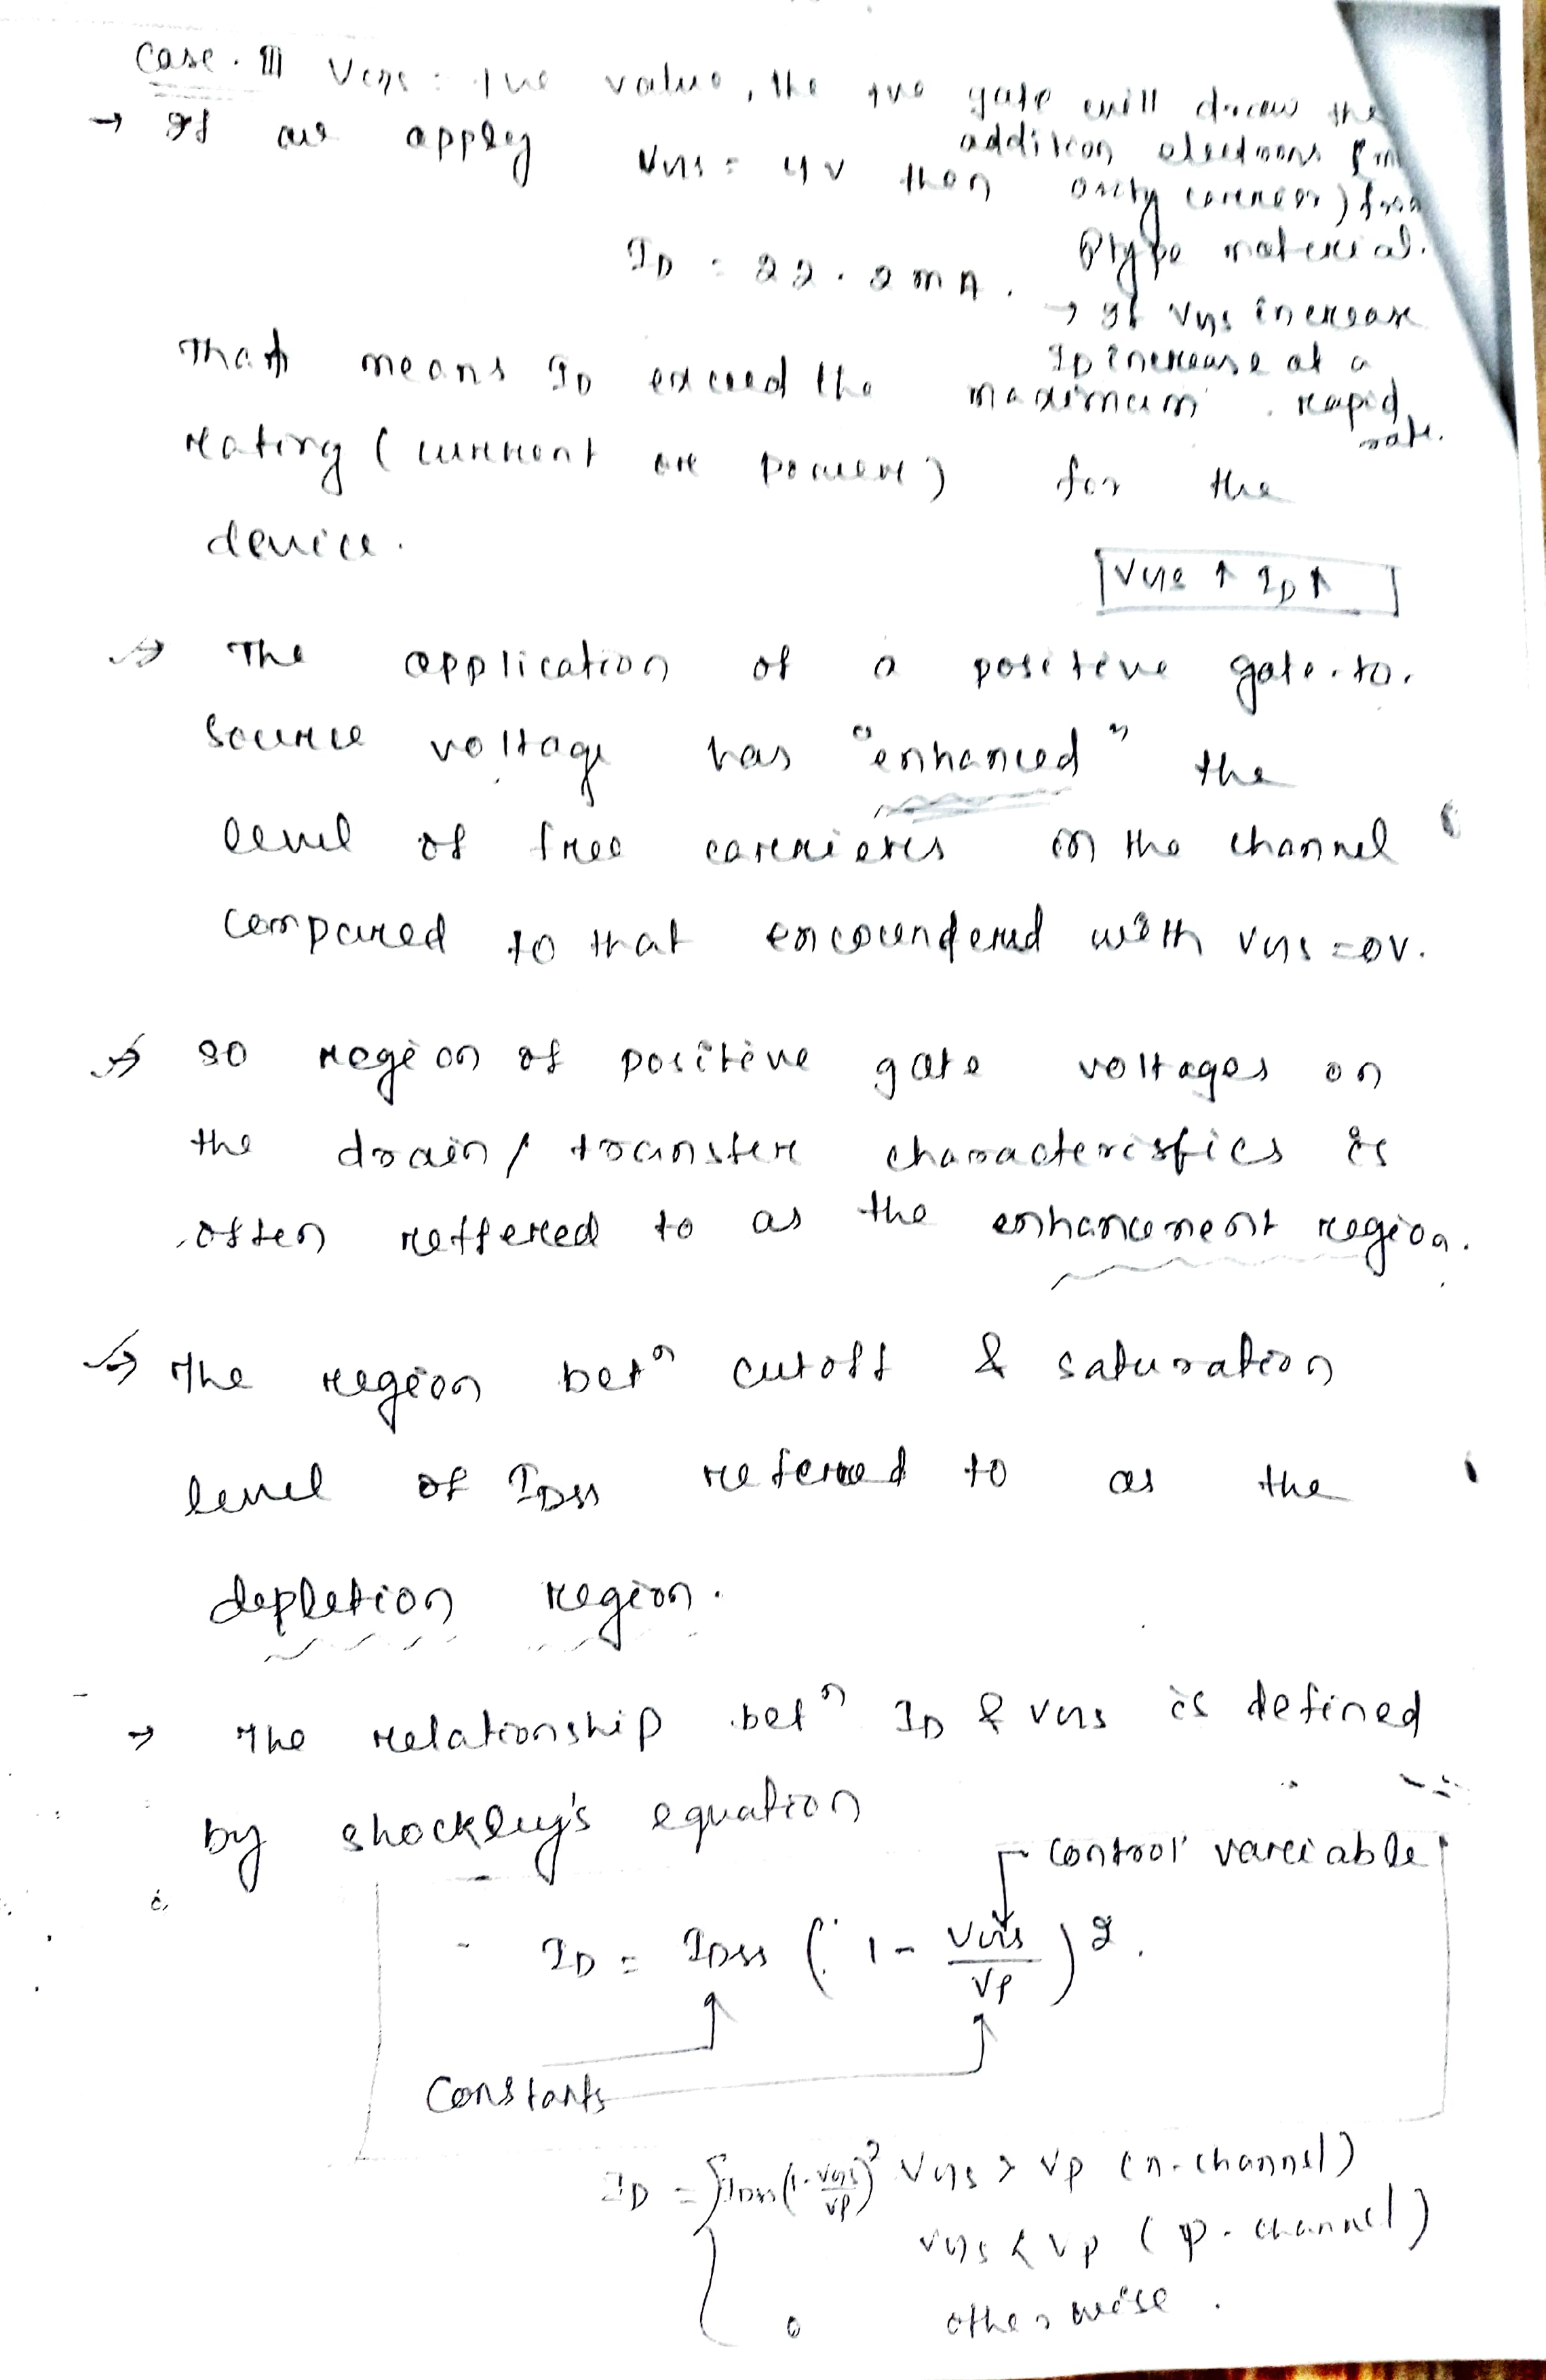 Case. III VGS = +ve value, the +ve gate will draw the
addition electrons (min
ority carrier) from
Ptype material.
→ If VGS increase
ID increase at a
rapid
rate.
→ If we apply VGS = 4V then
ID = 22.2mA.
That means ID exceed the maximum
rating (current or power) for the
device.
VGS ↑ ID ↑
→ The application of a positive gate-to-
source voltage has "enhanced" the
level of free carriers in the channel
compared to that encoundered with VGS = 0V.
→ so region of positive gate voltages on
the drain/ transfer characteristics is
often reffered to as the enhancement region.
→ The region betn cutoff & saturation
level of IDSS referred to as the
depletion region.
→ The relationship betn ID & VGS is defined
by shockley's equation
control variable
ID = IDSS (1 - VGS/VP)2.
Constants
ID = { IDSS(1-VGS/VP)2 VGS > VP (n-channel)
VGS < VP (p-channel)
0 otherwise.